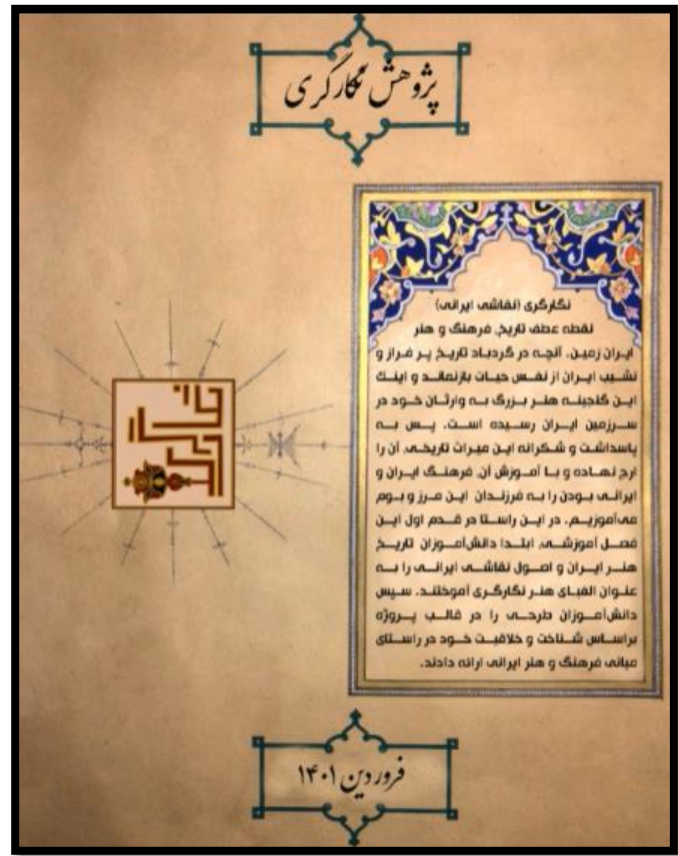 پژوهش نگارگری
نگارگری (نقاشی ایرانی)
نقطه عطف تاریخ، فرهنگ و هنر
ایران زمین. آنچه در گردباد تاریخ پر فراز و
نشیب ایران از نفس حیات بازنماند و اینک
این گنجینه هنر بزرگ به وارثان خود در
سرزمین ایران رسیده است. پس به
پاسداشت و شکرانه این میراث تاریخی، آن را
ارج نهاده و با آموزش آن، فرهنگ ایران و
ایرانی بودن را به فرزندان این مرز و بوم
می‌آموزیم. در این راستا در قدم اول این
فصل آموزشی، ابتدا دانش‌آموزان تاریخ
هنر ایران و اصول نقاشی ایرانی را به
عنوان الفبای هنر نگارگری آموختند. سپس
دانش‌آموزان طرحی را در قالب پروژه
براساس شناخت و خلاقیت خود در راستای
مبانی فرهنگ و هنر ایرانی ارائه دادند.
فروردین ۱۴۰۱